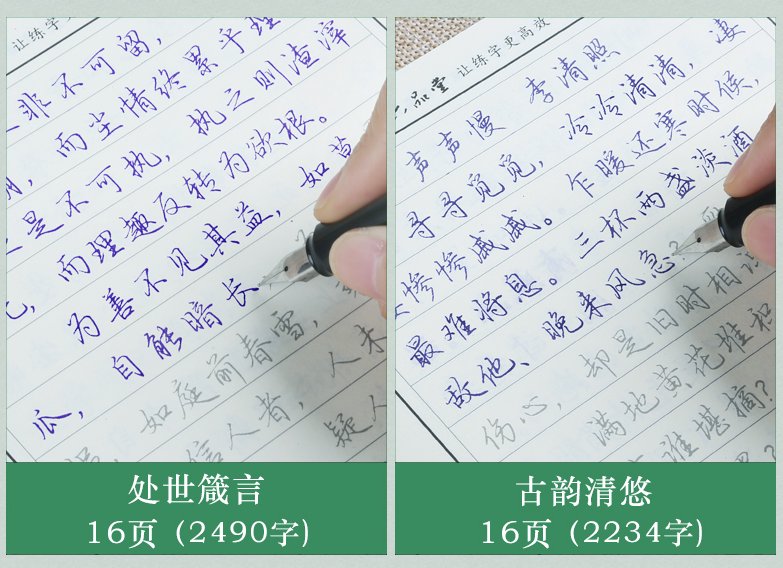 让练字
非不可留，
而尘情终累乎理
是不可执，执之则渣滓
而理趣反转为欲根。
为善不见其益，如草
瓜，自能暗长
如庭前春雪，
信人者，人未
疑人
处世箴言
16页（2490字）
品堂 让练字更高效
声声慢 李清照
寻寻觅觅，冷冷清清，凄
惨惨戚戚。乍暖还寒时候，
最难将息。三杯两盏淡酒
敌他、晚来风急？
伤心，却是旧时相识
满地黄花堆积
谁堪摘？
古韵清悠
16页（2234字）